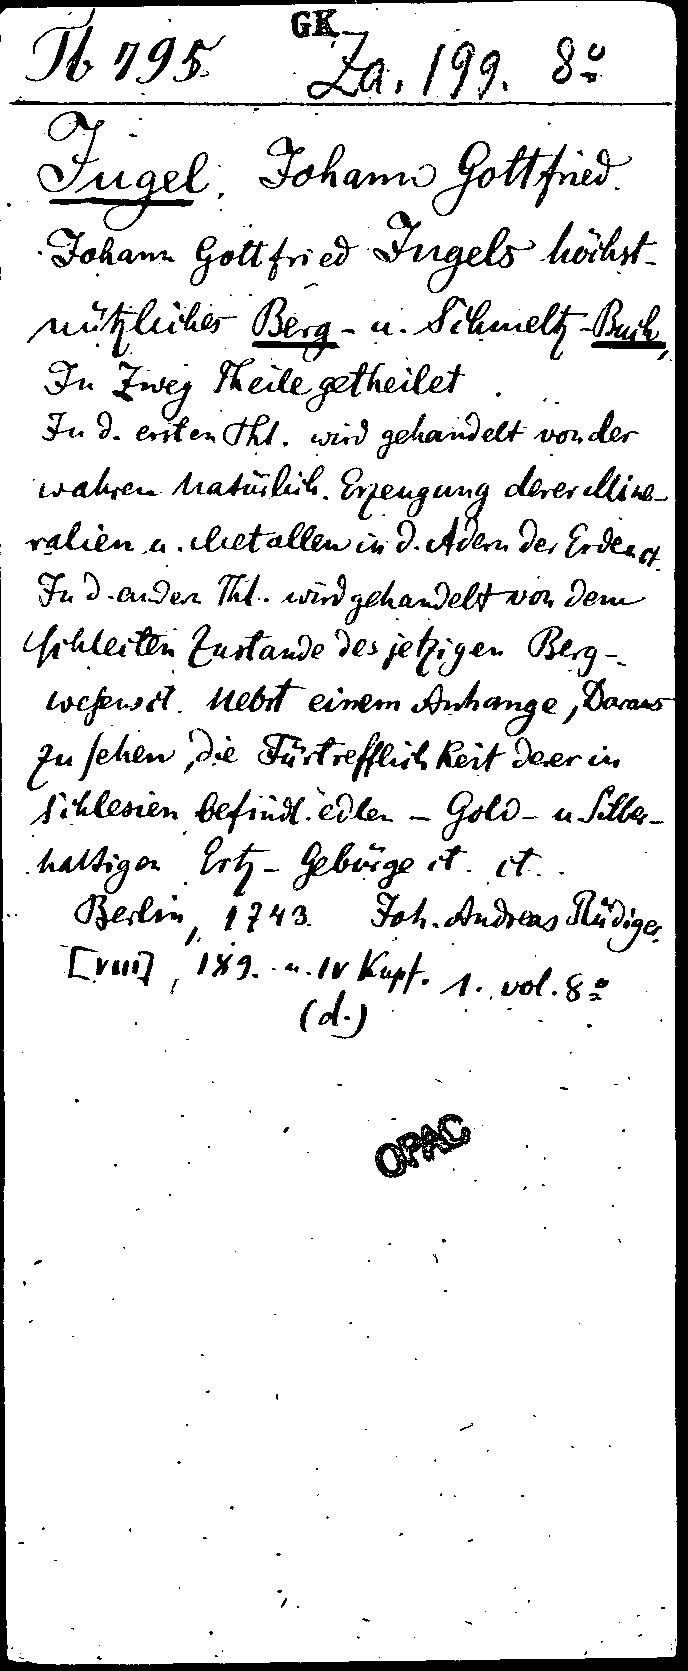 GK
Tb 795. Za. 199. 8º
Jugel, Johann Gottfried.
Johann Gottfried Jugels höchst-
nützliches Berg- u. Schmeltz-Buch,
In Zwey Theile getheilet.
In d. ersten Thl. wird gehandelt von der
wahren Natürlich. Erzeugung derer Mine-
ralien u. Metallen in d. Adern der Erden ct.
In d. andern Thl. wird gehandelt von dem
schlechten Zustande des jetzigen Berg-
wesens ct. Nebst einem Anhange, Daraus
zu sehen, die Fürtrefflichkeit derer in
Schlesien befindl. edlen - Gold- u. Silber-
haltigen Ertz-Gebürge ct. ct.
Berlin, 1743. Joh. Andreas Rüdiger.
[VIII], 189. u. IV Kupf. 1. vol. 8º
(d.)
OPAC